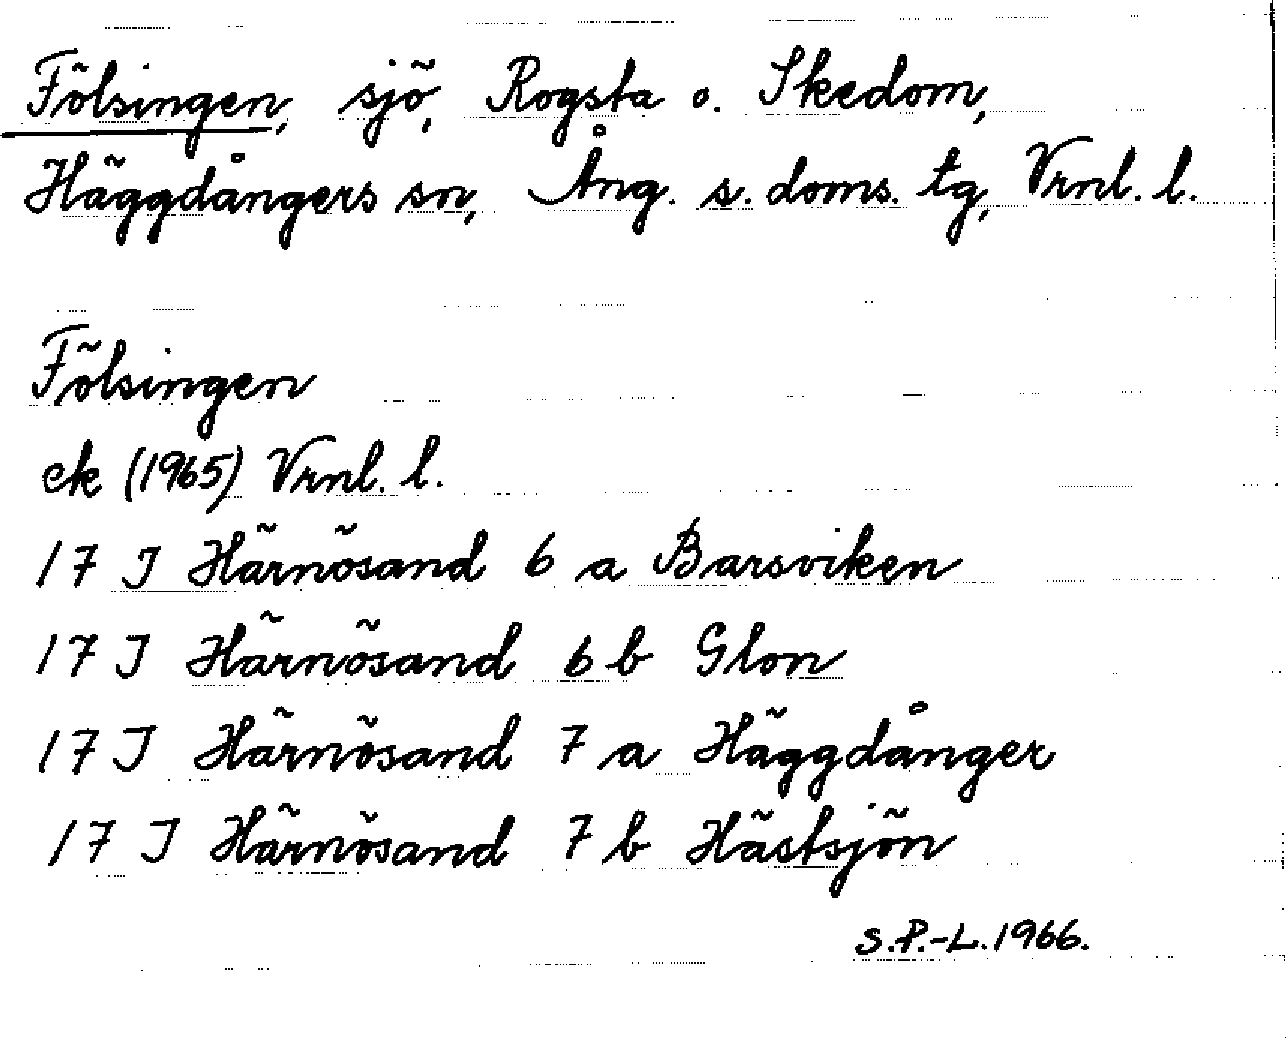 Fölsingen, sjö, Rogsta o. Skedom,
Häggdångers sn, Ång. s. doms. tg, Vrnl. l.
Fölsingen
ek (1965) Vrnl. l.
17 J Härnösand 6 a Barsviken
17 J Härnösand 6 b Glon
17 J Härnösand 7 a Häggdånger
17 J Härnösand 7 b Hästsjön
S.P.-L. 1966.